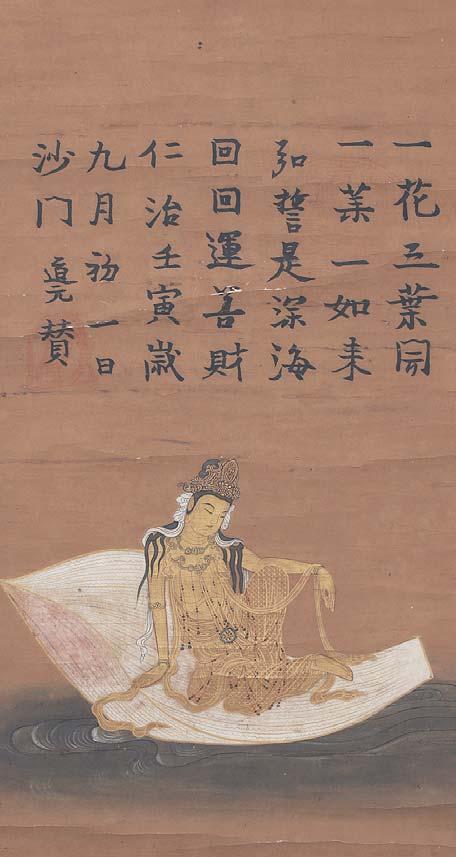 一花五葉開
一葉一如来
弘誓是深海
回回運善財
仁治壬寅歳
九月初一日
沙門道元賛